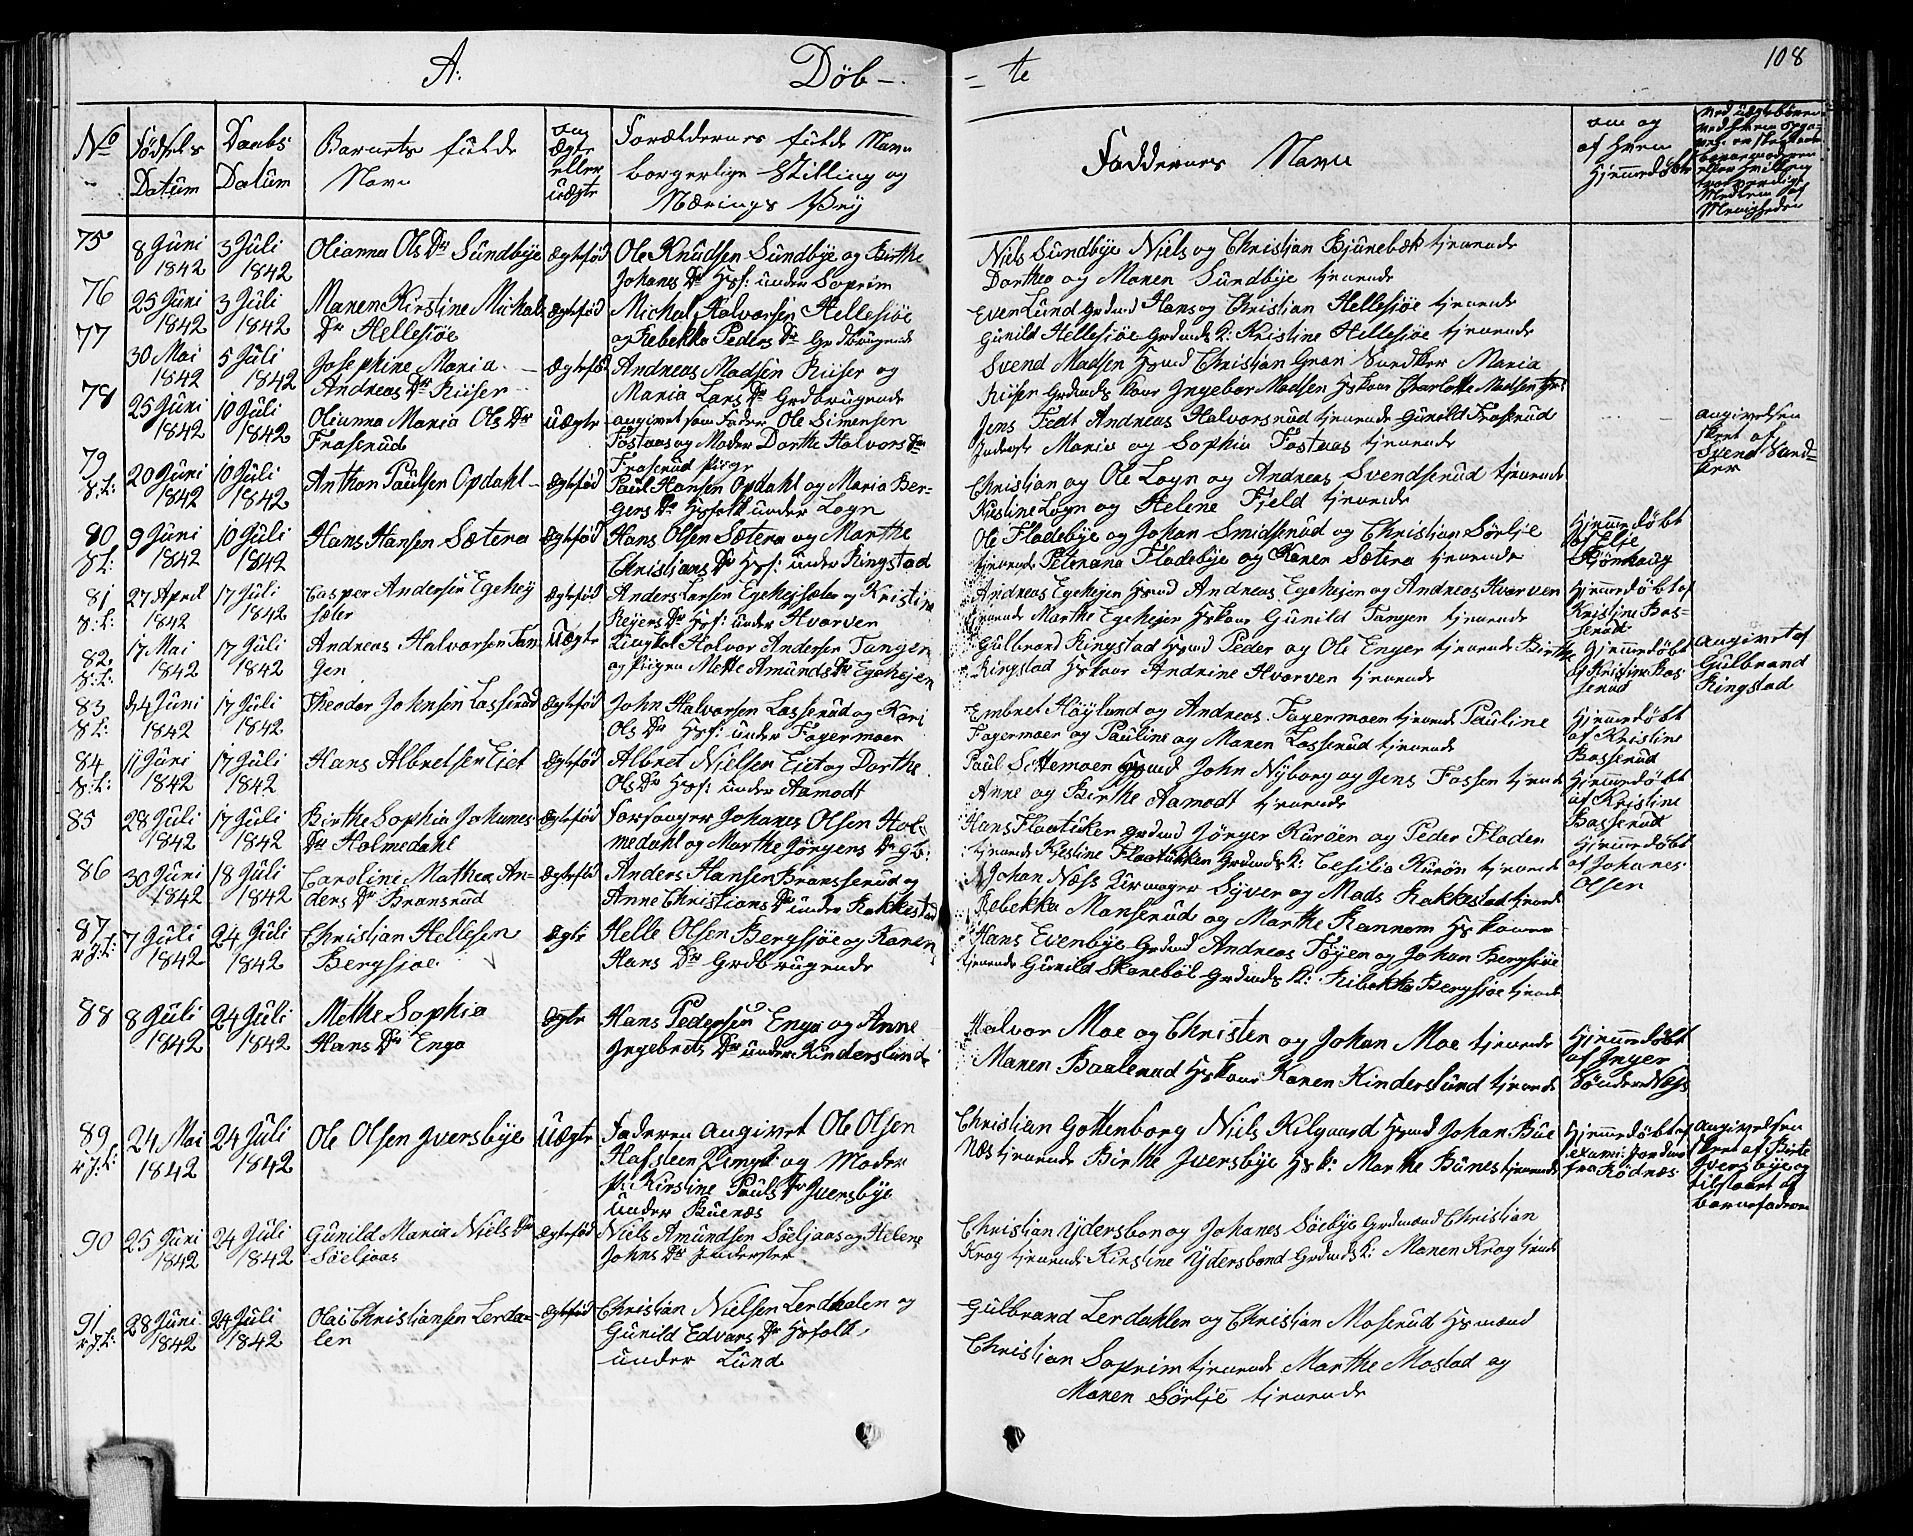 A:
Døb -
- te
108
No
Fødsels Datum
Daabs Datum
Barnets fulde Navn
om ægte eller uægte
Forældrenes fulde Navn borgerlige Stilling og Nærings Vej
Faddernes Navn
om og af hvem Hjemmedøbt
75
8 Juni 1842
3 Juli 1842
Olianna Ols Dr Sundbye
Ægtefød
Ole Knudsen Sundbye og Birthe
Johanes Dr Hsf: under Soprim
Niels Sundbye Niels og Christian Bjünebæk tjenende
Dorthea og Maren Sundbye tjenende
76
25 Juni 1842
3 Juli 1842
Maren Kirstine Michals
Dr Hellesiøe
Ægtefød
Michal Halvorsen Hellesiøe
og Rebekka Peders Dr Grdbrugende
Even Lund Grdmd Hans og Christian Hellesiøe tjenende
Gunild Hellesiøe Grdmds K: Kristine Hellesiøe tjenende
77
30 Mai 1842
5 Juli 1842
Josephine Maria
Andreas Dr Riiser
Ægtefød
Andreas Madsen Riiser og
Maria Lars Dr Grdbrugende
Svend Madsen Hsmd Christian Gran Maria
Riiser Grdmds Kone Ingebor Madsen Hskone Charlotte Madsen
78
25 Juni 1842
10 Juli 1842
Olianna Maria Ols Dr
Froserud
Uægte
angivet som Fader Ole Simensen
Fostaas og Moder Dorthe Halvors Dr
Froserud Pige
Jens Tedt Andreas Halvorsrud tjenende Gunild Froserud
Inderst Maria og Sophia Fostaas tjenende
angivelsen
skeet af
Svend Sand-
ker
79
S:L:
20 Juni 1842
10 Juli 1842
Anthon Paulsen Opdahl
Ægtefød
Paul Hansen Opdahl og Maria Ber-
gers Dr Hsfolk under Logn
Christian og Ole Logn og Andreas Svendserud tjenende
Kirstine Logn og Helene Fjeld tjenende
80
S:L:
9 Juni 1842
10 Juli 1842
Hans Hansen Sætera
Ægtefød
Hans Olsen Sætera og Marthe
Christians Dr Hsf: under Ringstad
Ole Fladebye og Johan Smidserud og Christian Sørlje
tjenende Peternana Fladebye og Karen Sætera tjenende
Hjemmedøbt
af Elje
Bjønhaug
81
S:L:
27 April 1842
17 Juli 1842
Casper Andersen Egehej
sæter
Ægtefød
Anders Larsen Egehejsæter og Kristine
Reiers Dr Hsf: under Hvarven
Andreas Egehejen Hsmd Andreas Egehejen og Andreas Hvarven
tjenende Marthe Egehejen Hskone Gunild Tangen tjenende
Hjemmedøbt af
Kristine Bas-
serud
82
S:L:
17 Mai 1842
17 Juli 1842
Andreas Halvorsen Tan-
gen
Uægte
Ungkal Halvor Andersen Tangen
og Pigen Mette Amunds Dr Egehejen
Gulbrand Ringstad Hsmd Peder og Ole Enger tjenende Birthe
Ringstad Hskone Andrine Hvarven tjenende
Hjemmedøbt
af Kristine Bas-
serud
Angivet af
Gulbrand
Ringstad
83
S:L:
24 Juni 1842
17 Juli 1842
Theodor Johnsen Lasserud
Ægtefød
John Halvorsen Lasserud og Kari
Ols Dr Hsf: under Fagermoen
Embret Høglund og Andreas Fagermoen tjenende Pauline
Fagermoen og Pauline og Maren Lasserud tjenende
Hjemmedøbt
af Kristine
Basserud
84
S:L:
11 Juni 1842
17 Juli 1842
Hans Albretsen Eiet
Ægtefød
Albret Nielsen Eiet og Dorthe
Ols Dr Hsf: under Aamodt
Paul Settemoen Hsmd John Nyborg og Jens Fossen tjende
Anne og Birthe Aamodt tjenende
Hjemmedøbt
af Kristine
Basserud
85
28 Juli 1842
17 Juli 1842
Birthe Sophia Johanes
Dr Holmedahl
Ægtefød
Forsanger Johanes Olsen Hol-
medahl og Marthe Jørgens Dr
Hans Flaatüken Grdmd Jørger Kurøen og Peder Floden
tjenende Kjestine Flaatükken Grdmds K: Cesilia Kurøn tjenende
Hjemmedøbt
af Johanes
Olsen
86
30 Juni 1842
18 Juli 1842
Caroline Mathea An-
ders Dr Bransrud
Ægtefød
Anders Hansen Bransserud og
Anne Christians Dr under Rakkestad
Johan Næss Syver og Mads Rakkestad tjende
Rebekka Manserud og Marthe Rannem Hskoner
87
7 Juli 1842
24 Juli 1842
Christian Hellesen
Bergsjøe
Ægte
Helle Olsen Bergsjøe og Karen
Hans Dr Grdbrugende
Hans Evenbye Grdmd Andreas Tøyen og Johan Bergsjøe
tjenende Gunild Skanebøl Grdmds K: Ribekka Bergsjøe tjende
88
8 Juli 1842
24 Juli 1842
Mathe Sophia
Hans Dr Enga
Ægte
Hans Pedersen Enga og Anne
Ingebrets Dr under Kinderslund
Halvor Moe og Christen og Johan Moe tjenende
Maren Baalerud Hskone Karen Kinderslund tjenende
Hjemmedøbt
af Inger
Sønder Næss
89
24 Mai 1842
24 Juli 1842
Ole Olsen Iversbye
Uægte
Faderen angivet Ole Olsen
Hafsteen og Moder
P: Kirstine Pauls Dr Iversbye
under Buenæs
Christian Gottenborg Niels Kilgaard Hsmd Johan Bue
Næs tjenende Birthe Iversbye Hs K: Marthe Bünes tjenende
Hjemmedøbt af
exami: Jordmor
fra Rødnæs
Angivelsen
skeet af Birte
Iversbye og
tilstaaet af
barnefaderen
90
25 Juni 1842
24 Juli 1842
Gunild Maria Niels Dr
Søeljaas
Ægtefød
Niels Amundsen Søeljaas og Helene
Johns Dr Inderster
Christian Ydersbon og Johanes Søebye Grdmænd Christian
Krog tjenende Kirstine Ydersbond Grdmds K: Maren Krog tjende
91
28 Juni 1842
24 Juli 1842
Olai Christiansen Lerda-
len
Ægtefød
Christian Nielsen Lerdhalen og
Gunild Edvars Dr Hsfolk
under Lund
Gulbrand Lerdahlen og Christian Moserud Hsmænd
Christian Soprim tjenende Marthe Mostad og
Maren Sørlje tjenende